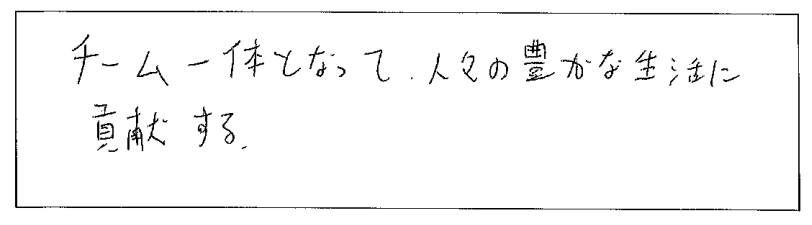 チーム一体となって、人々の豊かな生活に
貢献する。